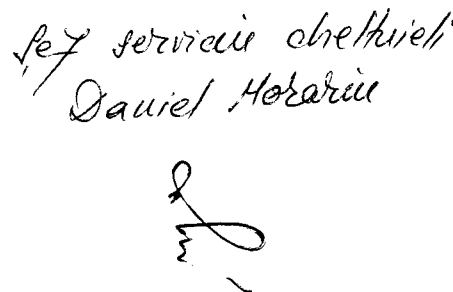 Șef serviciu cheltuieli
Daniel Morariu